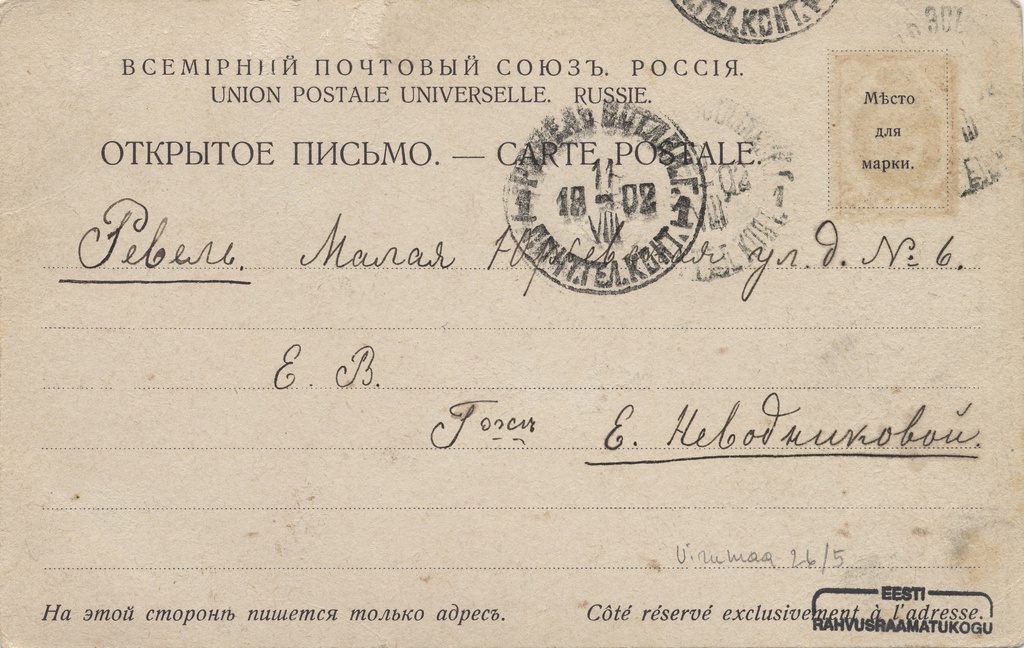 ВСЕМІРНЫЙ ПОЧТОВЫЙ СОЮЗЪ. РОССІЯ.
UNION POSTALE UNIVERSELLE. RUSSIE.
ОТКРЫТОЕ ПИСЬМО. — CARTE POSTALE.
Мѣсто
для
марки.
РЕВЕЛЬ
ПОЧТ.ТЕЛ.КОНТ. 1
18 02
Ревель. Малая Юрьевская ул. д. № 6.
Е. В.
Гожѣ Е. Неводниковой.
Virumaa 26/5
На этой сторонѣ пишется только адресъ.
Côté réservé exclusivement à l'adresse.
EESTI
RAHVUSRAAMATUKOGU